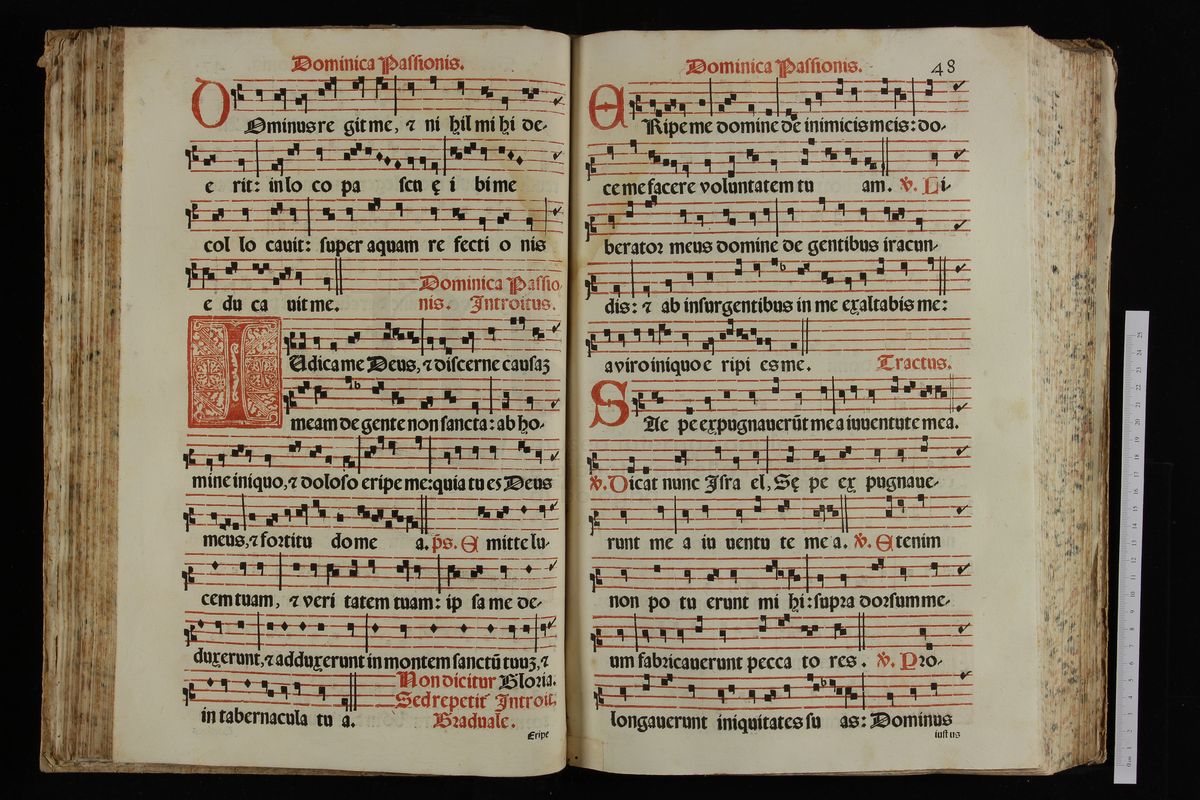 Dominica Passionis.
DOminus re git me, ⁊ ni hil mi hi de-
e rit: in lo co pa scu ę i bi me
col lo cauit: super aquam re fecti o nis
e du ca uit me. Dominica Passio-
nis. Introitus.
IUdica me Deus, ⁊ discerne causaꝫ
meam de gente non sancta: ab ho-
mine iniquo, ⁊ doloso eripe me: quia tu es Deus
meus, ⁊ fortitu do me a. p̄s. Emitte lu-
cem tuam, ⁊ veri tatem tuam: ip sa me de-
duxerunt, ⁊ adduxerunt in montem sanctū tuuꝫ, ⁊
in tabernacula tu a.
Non dicitur Gloria.
Sed repetit' Introit.
Graduale.
Eripe
Dominica Passionis.
48
ERipe me domine de inimicis meis: do-
ce me facere voluntatem tu am. ℣. Li-
berator meus domine de gentibus iracun-
dis: ⁊ ab insurgentibus in me exaltabis me:
a viro iniquo e ripi es me. Tractus.
SAe pe expugnauerūt me a iuuentute mea.
℣. Dicat nunc Isra el, Sę pe ex pugnaue-
runt me a iu uentu te me a. ℣. Etenim
non po tu erunt mi hi: supra dorsum me-
um fabricauerunt pecca to res. ℣. Pro-
longauerunt iniquitates su as: Dominus
iustus
0 cm 1 2 3 4 5 6 7 8 9 10 11 12 13 14 15 16 17 18 19 20 21 22 23 24 25